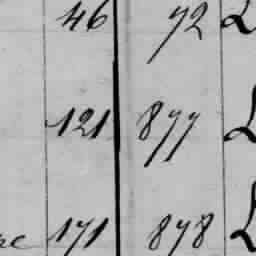 46 72
121 877
171 878